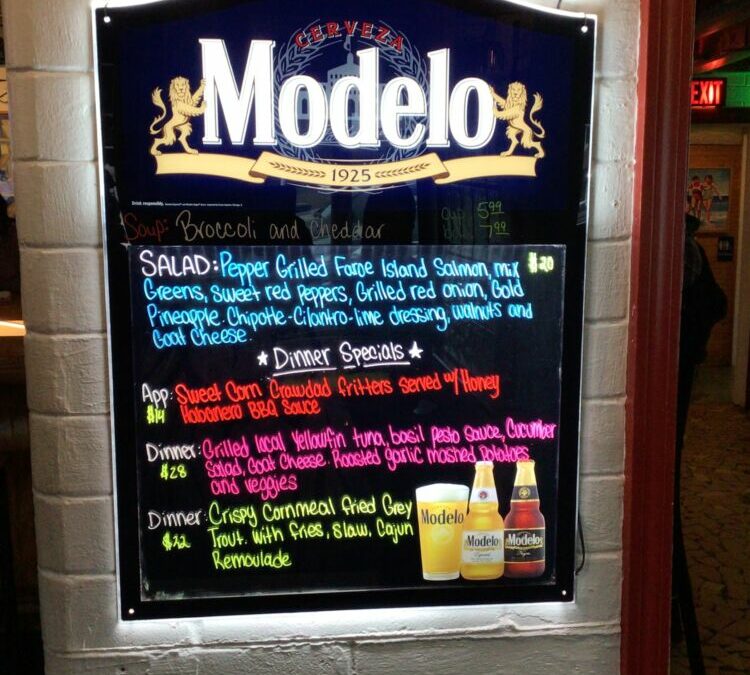 CERVEZA
Modelo
1925
Drink responsibly.
EXIT
Soup: Broccoli and cheddar 5.99
7.99
SALAD: Pepper Grilled Faroe Island Salmon, mix $20
Greens, sweet red peppers, Grilled red onion, Gold
Pineapple. Chipotle-Cilantro-lime dressing, walnuts and
Goat Cheese.
★ Dinner Specials ★
App: Sweet Corn Crawdad fritters served w/ Honey
$14 Habanero BBQ Sauce
Dinner: Grilled local Yellowfin tuna, basil pesto sauce, Cucumber
$28 Salad, Goat Cheese. Roasted garlic mashed potatoes
and veggies
Dinner: Crispy Cornmeal fried Grey
$22 Trout. with fries, slaw, Cajun
Remoulade
Modelo
Modelo
Modelo